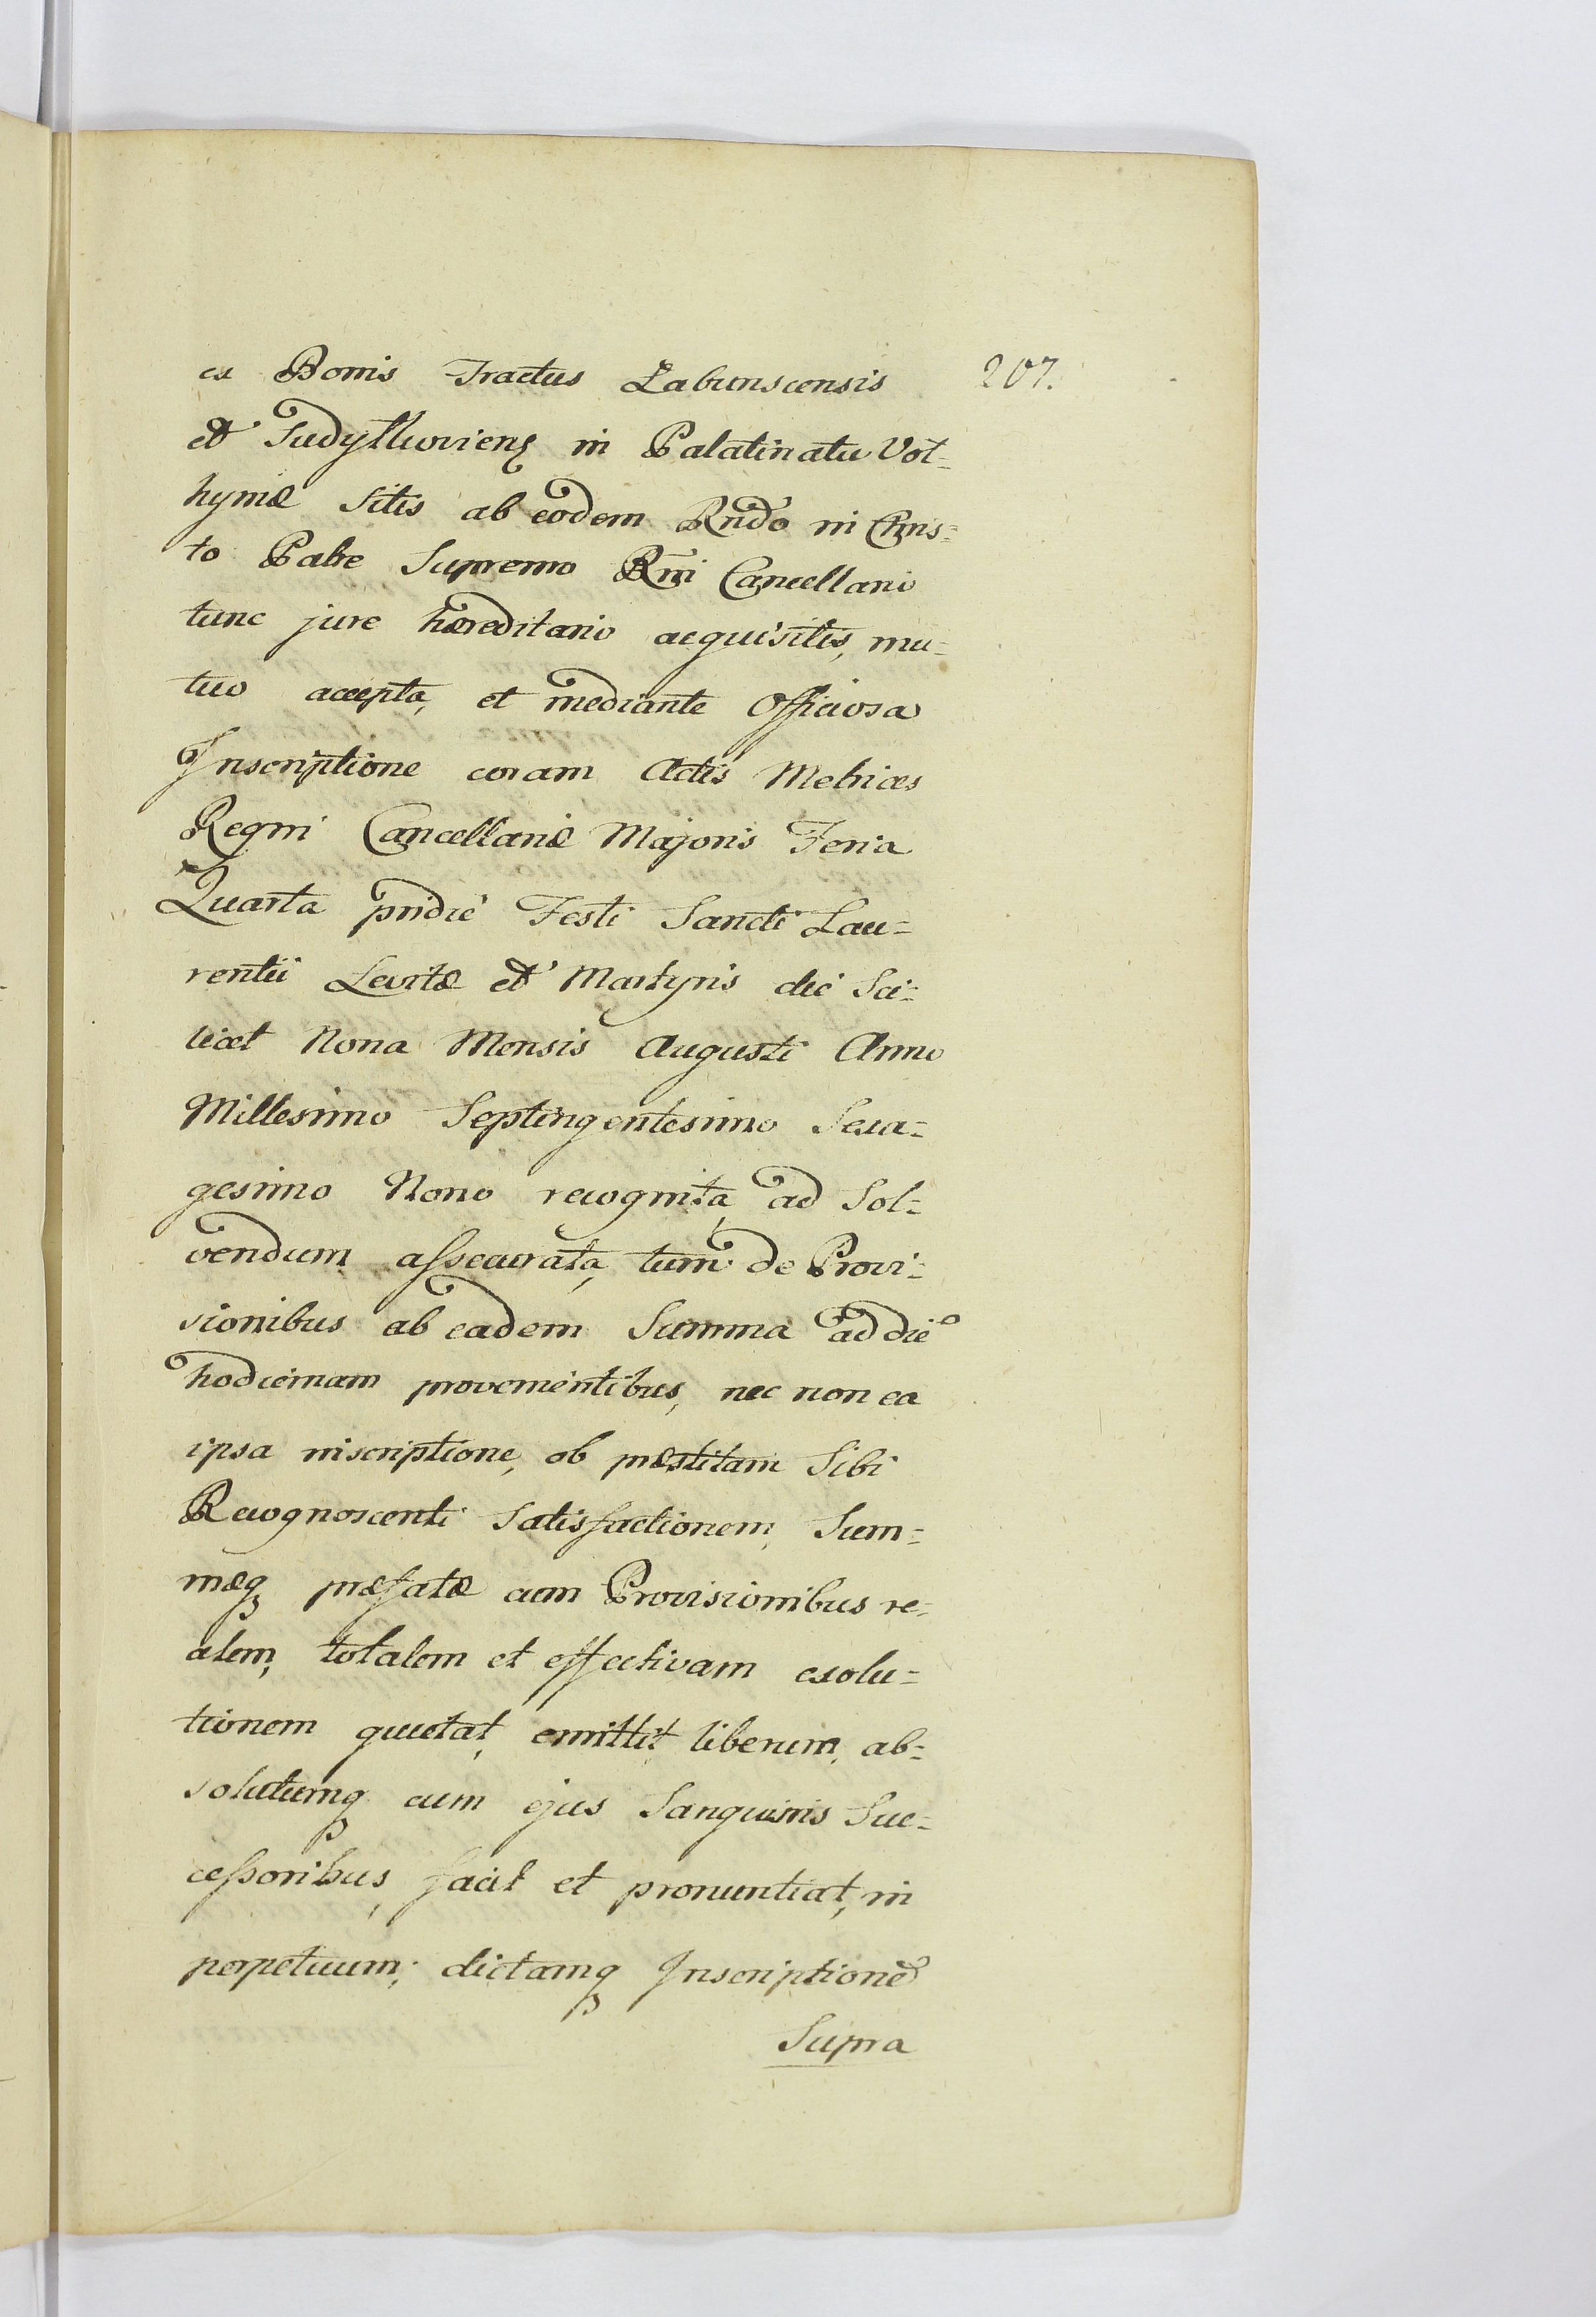 ex Bonis Tractus Łabunscensis 207.
et Sudyłkoviens in Palatinatu Vol-
hyniæ sitis ab eodem Rndo in Chris=
to Patre Supremo Rni Cancellario
tunc jure hæreditario acquisitis, mu=
tuo accepta, et mediante Officiosa
Inscriptione coram Actis Metrices
Regni Cancellariæ Majoris Feria
Quarta pridie Festi Sancti Lau=
rentii Levitæ et Martyris die Sci=
licet Nona Mensis Augusti Anno
Millesimo Septingentesimo Sexa=
gesimo Nono recognita, ad Sol=
vendum assecurata, tum de Provi=
sionibus ab eadem Summa ad die
hodiernam provenientibus, nec non ea
ipsa inscriptione, ob præstitam Sibi
Recognoscenti Satisfactionem, Sum=
mæq præfatæ cum Provisionibus re=
alem, totalem et effectivam exolu=
tionem quietat, emittit liberum, ab=
solutumq cum ejus Sanguinis Suc=
cessoribus, facit et pronuntiat, in
perpetuum; dictamq Inscriptione
Supra